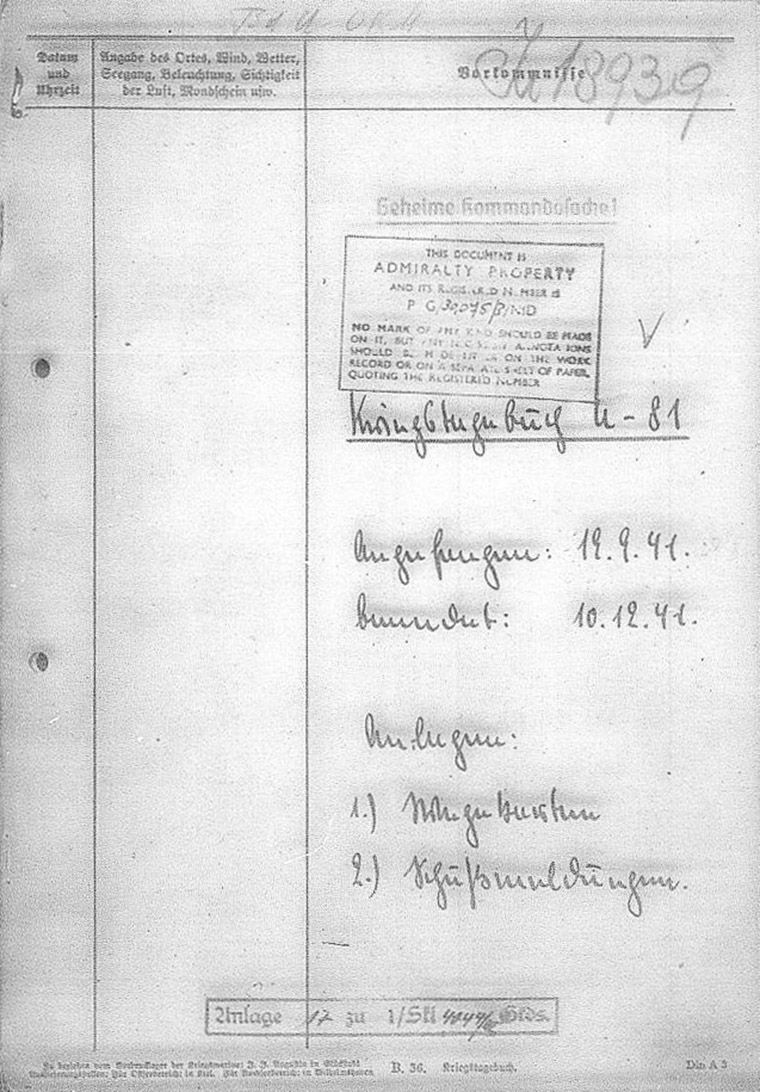 B d U O K M
18939
Datum
und
Uhrzeit
Angabe des Ortes, Wind, Wetter,
Seegang, Beleuchtung, Sichtigkeit
der Luft, Mondschein usw.
Vorkommnisse
Geheime Kommandosache!
THIS DOCUMENT IS
ADMIRALTY PROPERTY
AND ITS REGISTERED NUMBER IS
P G/30075/3/NID
NO MARK OF ANY KIND SHOULD BE MADE
ON IT, BUT ANY NECESSARY ANNOTATIONS
SHOULD BE MADE ON THE WORK
RECORD OR ON A SEPARATE SHEET OF PAPER,
QUOTING THE REGISTERED NUMBER
V
Kriegstagebuch U-81
Angefangen: 19.9.41.
beendet: 10.12.41.
Anlagen:
1.) Wegekarten
2.) Schußmeldungen.
Anlage 17 zu 1/Skl
Zu beziehen vom Vordrucklager der Kriegsmarine: J. J. Augustin in Glückstadt
für Ostseebereich: in Kiel. Für Nordseebereich: in Wilhelmshaven
B. 36. Kriegstagebuch.
Din A 3